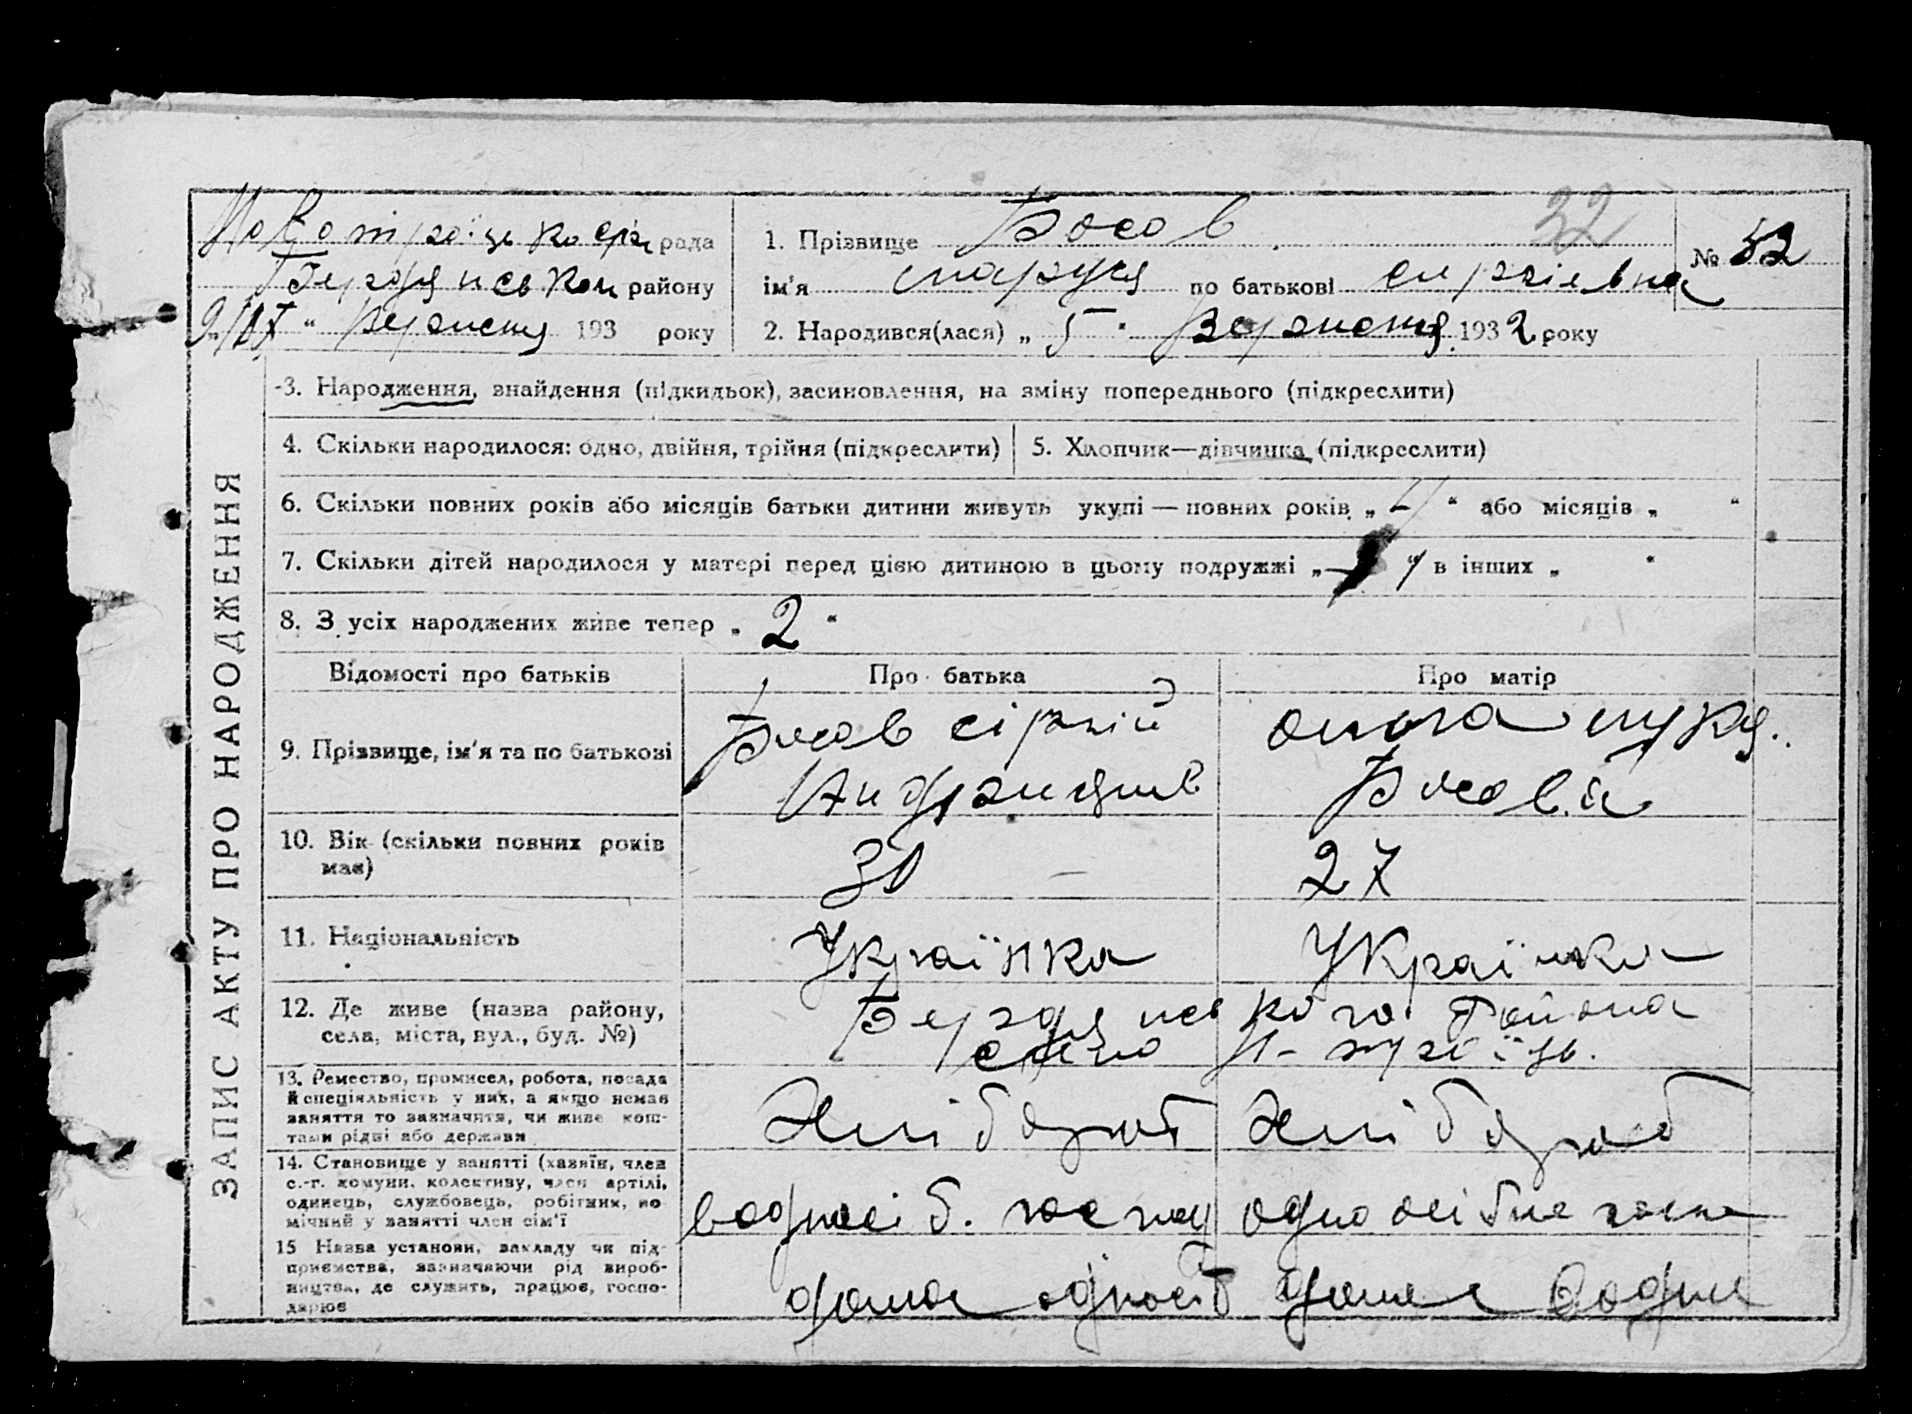 Новотроїцькосіл рада
Бердянськом району
9/ІХ " Вересня 193 року
1. Прізвище Босов
ім'я маруся по батькові сиргіевна
2. Народився(лася) „ 5 " Вересня 1932 року
32
№ 52
ЗАПИС АКТУ ПРО НАРОДЖЕННЯ
3. Народження, знайдення (підкидьок), засиновлення, на зміну попереднього (підкреслити)
4. Скільки народилося: одно, двійня, трійня (підкреслити)
5. Хлопчик—дівчинка (підкреслити)
6. Скільки повних років або місяців батьки дитини живуть укупі — повних років „ " або місяців „ "
7. Скільки дітей народилося у матері перед цією дитиною в цьому подружжі „ " в інших „ "
8. З усіх народжених живе тепер „ 2 "
Відомості про батьків Про батька Про матір
9. Прізвище, ім'я та по батькові
Босов сіргій
Андр
Босова
10. Вік (скільки повних років має)
30
27
11. Національність
Українка
Українка
12. Де живе (назва району, села, міста, вул., буд. №)
Бердянського району
село Н-троїць.
13. Ремество, промисел, робота, посада
й спеціяльність у них, а якщо немає
заняття то зазначити, чи живе кош-
тами рідні або держави
Хлібороб
Хлібороб
14. Становище у занятті (хазяїн, член
с.-г. комуни, колективу, член артілі,
одинець, службовець, робітник, по-
мічний у занятті член сім'ї
15 Назва установи, закладу чи під-
приємства, зазначаючи рід вироб-
ництва, де служить, працює, госпо-
дарює
дома
дома